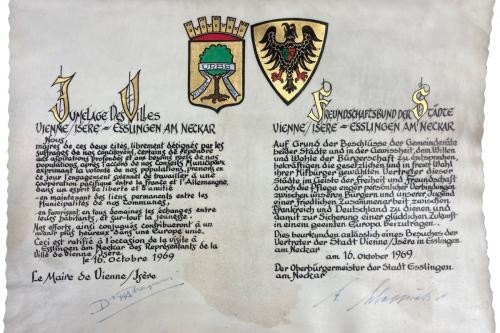 URBS
Jumelage Des Villes
Vienne/Isère = Esslingen am Neckar
Nous,
maires de ces deux cités, librement désignés par les
suffrages de nos concitoyens, certains de répondre
aux aspirations profondes et aux besoins réels de nos
populations, après l'accord de nos Conseils Municipaux
exprimant la volonté de nos populations, prenons en
ce jour l'engagement solennel de travailler à une
coopération pacifique entre la France et l'Allemagne,
dans un esprit de liberté et d'amitié
- en maintenant des liens permanents entre les
Municipalités de nos Communes,
- en favorisant en tous domaines les échanges entre
leurs habitants, et surtout la jeunesse.
Nos efforts, ainsi conjugués contribueront à un
avenir plus heureux dans une Europe unie.
Ceci est ratifié à l'occasion de la visite à
Esslingen am Neckar des Représentants de la
Ville de Vienne/Isère.
le 16 octobre 1969
Le Maire de Vienne/Isère
Freundschaftsbund der Städte
Vienne/Isère = Esslingen am Neckar
Auf Grund der Beschlüsse der Gemeinderäte
beider Städte und in der Gewissheit, dem Willen
und Wohle der Bürgerschaft zu entsprechen,
bekräftigen die gesetzlichen und in freier Wahl
ihrer Mitbürger gewählten Vertreter dieser
Städte im Geiste der Freiheit und Freundschaft
durch die Pflege enger persönlicher Verbindungen
zwischen unseren Bürgern und unserer Jugend
einer friedlichen Zusammenarbeit zwischen
Frankreich und Deutschland zu dienen, und
damit zur Sicherung einer glücklichen Zukunft
in einem geeinten Europa beizutragen.
Dies beurkunden anlässlich eines Besuches der
Vertreter der Stadt Vienne/Isère in Esslingen
am Neckar
am 16. Oktober 1969
Der Oberbürgermeister der Stadt Esslingen
am Neckar